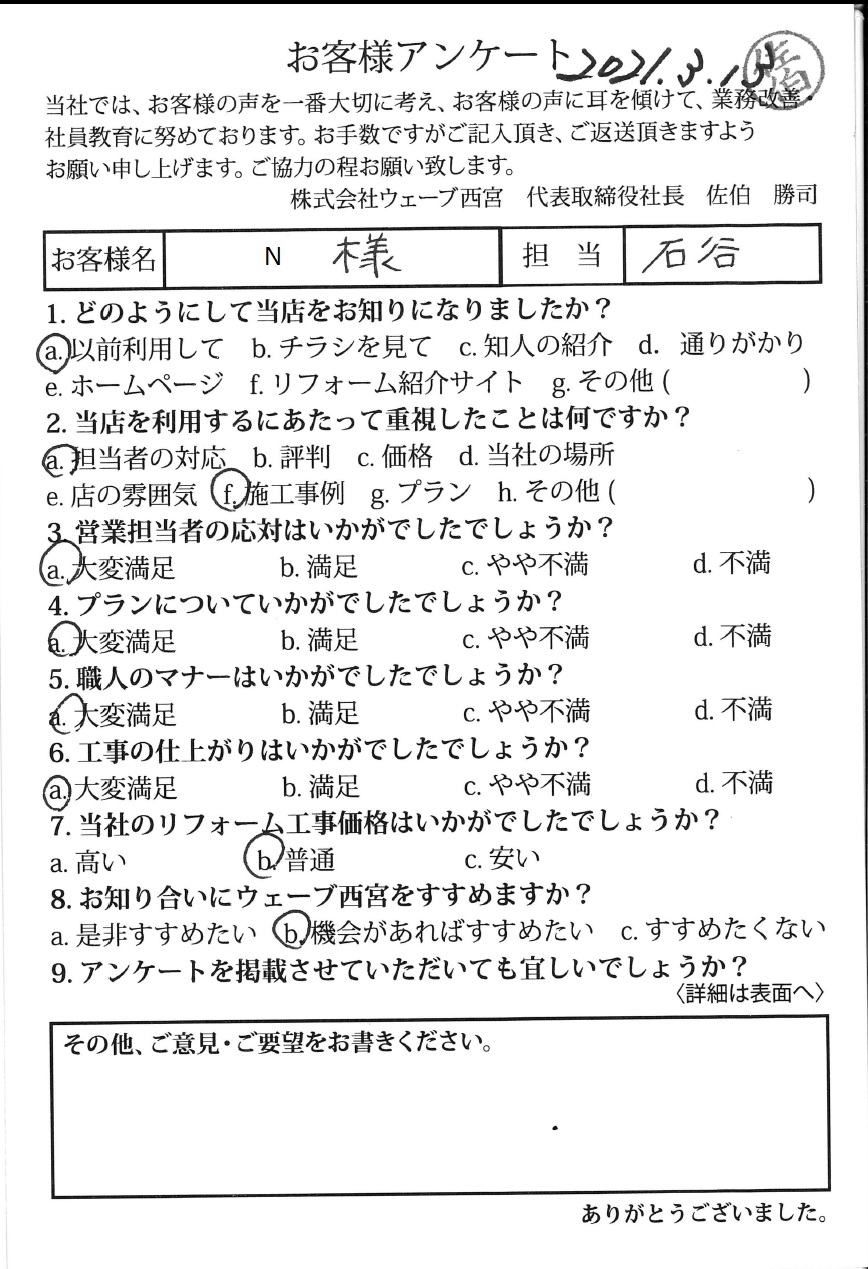 お客様アンケート 2021.3.13 佐伯
当社では、お客様の声を一番大切に考え、お客様の声に耳を傾けて、業務改善・
社員教育に努めております。お手数ですがご記入頂き、ご返送頂きますよう
お願い申し上げます。ご協力の程お願い致します。
株式会社ウェーブ西宮　代表取締役社長　佐伯　勝司
お客様名 N 様 担当 石谷
1. どのようにして当店をお知りになりましたか？
a. 以前利用して b. チラシを見て c. 知人の紹介 d. 通りがかり
e. ホームページ f. リフォーム紹介サイト g. その他 (　　　　　)
2. 当店を利用するにあたって重視したことは何ですか？
a. 担当者の対応 b. 評判 c. 価格 d. 当社の場所
e. 店の雰囲気 f. 施工事例 g. プラン h. その他 (　　　　　)
3. 営業担当者の応対はいかがでしたでしょうか？
a. 大変満足 b. 満足 c. やや不満 d. 不満
4. プランについていかがでしたでしょうか？
a. 大変満足 b. 満足 c. やや不満 d. 不満
5. 職人のマナーはいかがでしたでしょうか？
a. 大変満足 b. 満足 c. やや不満 d. 不満
6. 工事の仕上がりはいかがでしたでしょうか？
a. 大変満足 b. 満足 c. やや不満 d. 不満
7. 当社のリフォーム工事価格はいかがでしたでしょうか？
a. 高い b. 普通 c. 安い
8. お知り合いにウェーブ西宮をすすめますか？
a. 是非すすめたい b. 機会があればすすめたい c. すすめたくない
9. アンケートを掲載させていただいても宜しいでしょうか？
〈詳細は表面へ〉
その他、ご意見・ご要望をお書きください。
ありがとうございました。